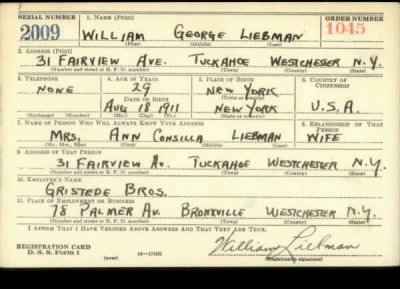 SERIAL NUMBER 1. NAME (Print) ORDER NUMBER
2009 WILLIAM GEORGE LIEBMAN 1045
(First) (Middle) (Last)
2. ADDRESS (Print)
31 FAIRVIEW AVE. TUCKAHOE WESTCHESTER N.Y.
(Number and street or R. F. D. number) (Town) (County) (State)
3. TELEPHONE 4. AGE IN YEARS 5. PLACE OF BIRTH 6. COUNTRY OF CITIZENSHIP
NONE 29 NEW YORK
DATE OF BIRTH (Town or county)
AUG 18 1911 NEW YORK U.S.A.
(Exchange) (Number) (Mo.) (Day) (Yr.) (State or country)
7. NAME OF PERSON WHO WILL ALWAYS KNOW YOUR ADDRESS 8. RELATIONSHIP OF THAT PERSON
MRS. ANN CONSILLA LIEBMAN WIFE
(Mr., Mrs., Miss) (First) (Middle) (Last)
9. ADDRESS OF THAT PERSON
31 FAIRVIEW AV. TUCKAHOE WESTCHESTER N.Y.
(Number and street or R. F. D. number) (Town) (County) (State)
10. EMPLOYER'S NAME
GRISTEDE BROS.
11. PLACE OF EMPLOYMENT OR BUSINESS
78 PALMER AV. BRONXVILLE WESTCHESTER N.Y.
(Number and street or R. F. D. number) (Town) (County) (State)
I AFFIRM THAT I HAVE VERIFIED ABOVE ANSWERS AND THAT THEY ARE TRUE.
William Liebman
REGISTRATION CARD
D. S. S. Form 1 (over) 16—17105 (Registrant's signature)